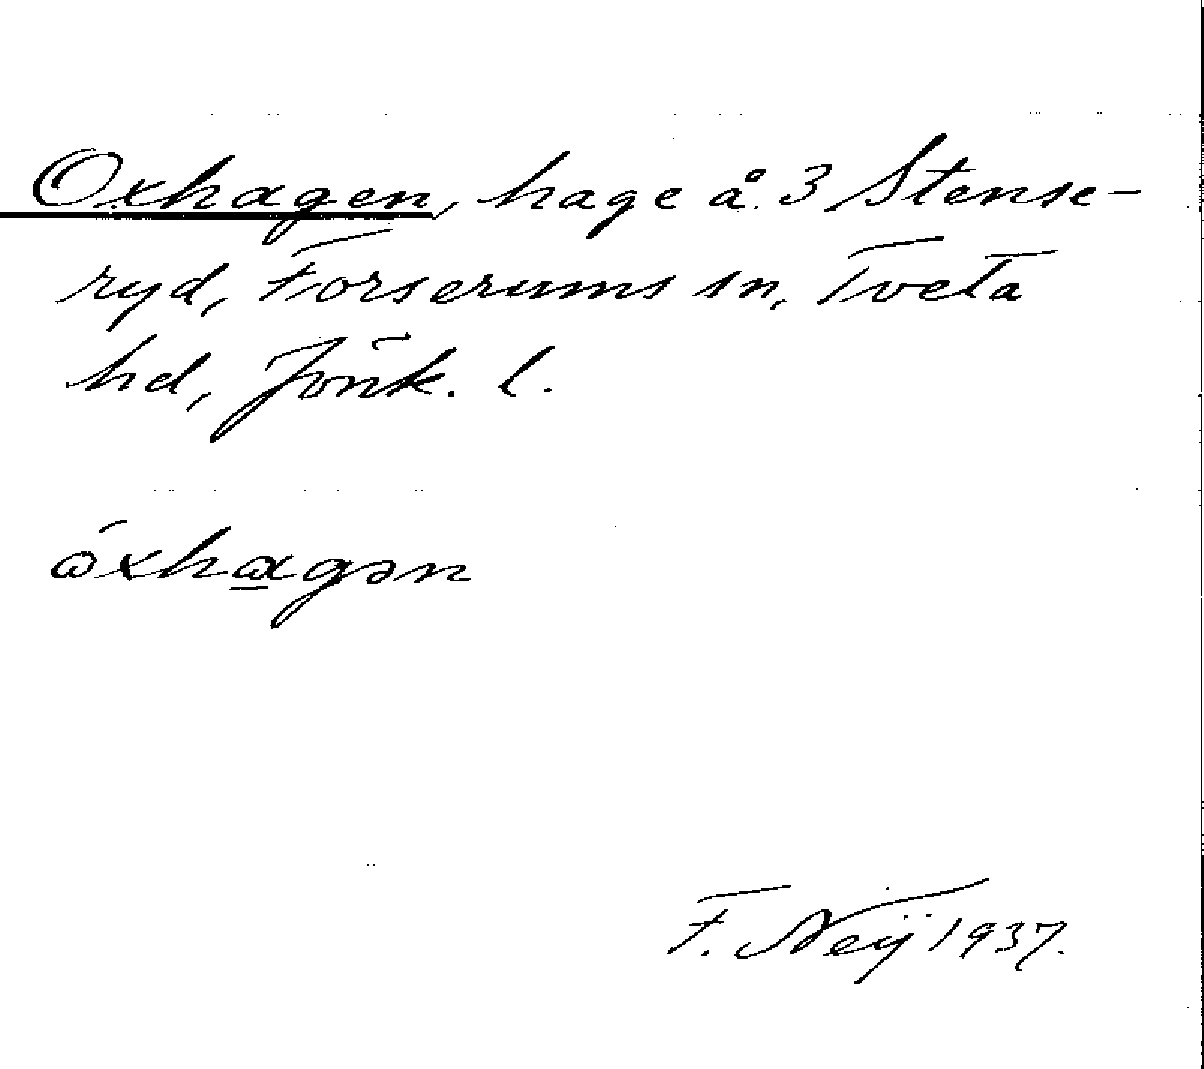 Oxhagen, hage å 3 Stense-
ryd, Forserums sn, Tveta
hd, Jönk. l.
ɷ́xhɑgən
F. Neij 1937.